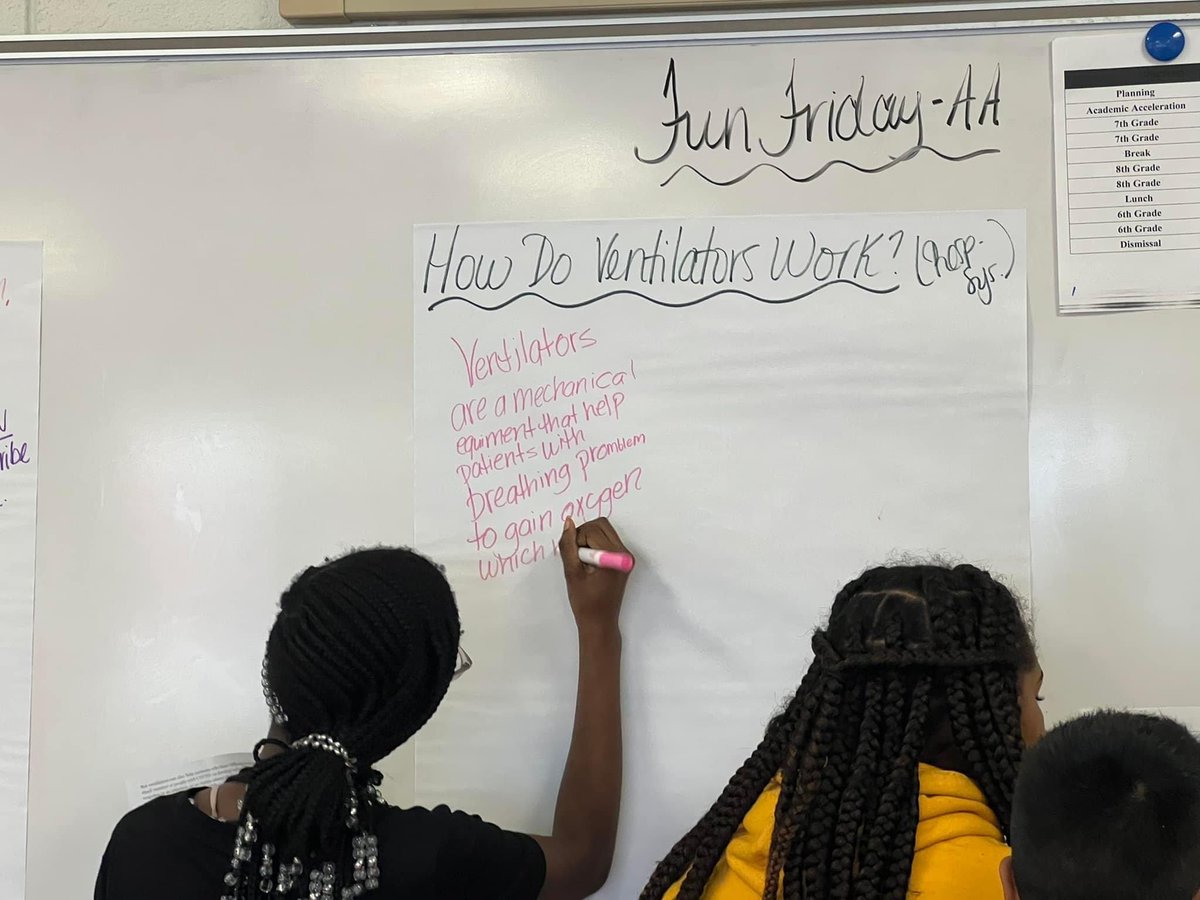 Fun Friday-AA
Planning
Academic Acceleration
7th Grade
7th Grade
Break
8th Grade
8th Grade
Lunch
6th Grade
6th Grade
Dismissal
How Do Ventilators Work? (Resp.
Sys.)
Ventilators
are a mechanical
equiment that help
patients with
breathing promblem
to gain oxcgen
which
ribe